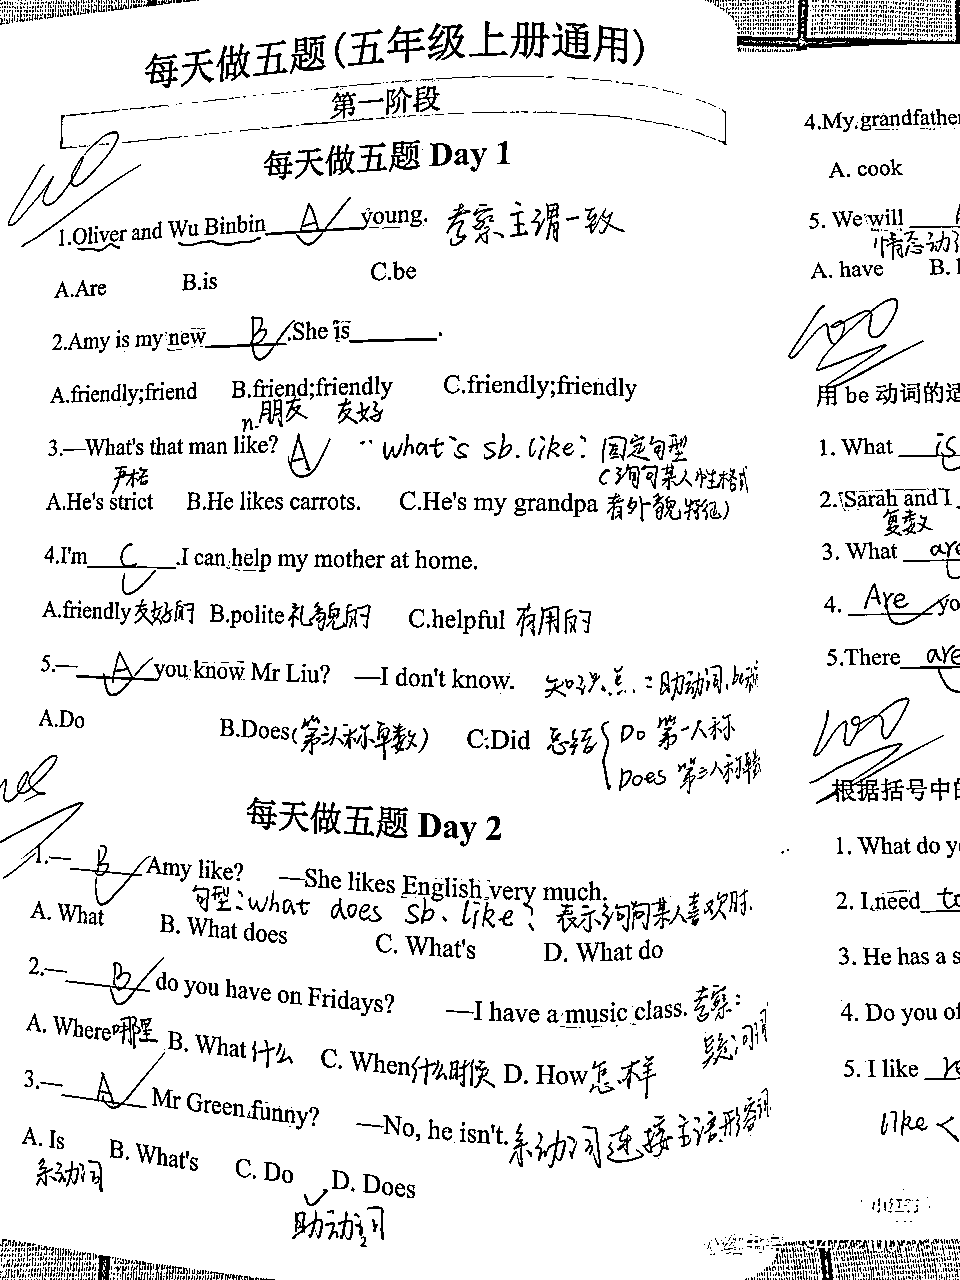 每天做五题(五年级上册通用)
第一阶段
每天做五题 Day 1
1.Oliver and Wu Binbin A young. 考察主谓一致
A.Are B.is C.be
2.Amy is my new B .She is .
A.friendly;friend B.friend;friendly C.friendly;friendly
n.朋友 友好
3.—What's that man like? A what's sb.like? 固定句型
严格 (询问某人性格或
A.He's strict B.He likes carrots. C.He's my grandpa 者外貌特征)
4.I'm C .I can help my mother at home.
A.friendly友好的 B.polite礼貌的 C.helpful 有用的
5.— A you know Mr Liu? —I don't know. 知识点:助动词
A.Do B.Does(第三人称单数) C:Did 总结 Do 第一人称
Does 第三人称单数
每天做五题 Day 2
1.— B Amy like? —She likes English very much.
句型:what does sb. like? 表示询问某人喜欢时.
A. What B. What does C. What's D. What do
2.— B do you have on Fridays? —I have a music class. 考察:
疑问词
A. Where哪里 B. What什么 C. When什么时候 D. How怎样
3.— A Mr Green funny? —No, he isn't. 系动词连接主语形容词
A. Is B. What's C. Do D. Does
系动词
助动词
4.My grandfather
A. cook
5. We will
情态动词
A. have B.
100
用 be 动词的适
1. What is
2. Sarah and I
复数
3. What are
4. Are yo
5.There are
100
根据括号中的
1. What do y
2. I need
3. He has a s
4. Do you of
5. I like
like <
小红书